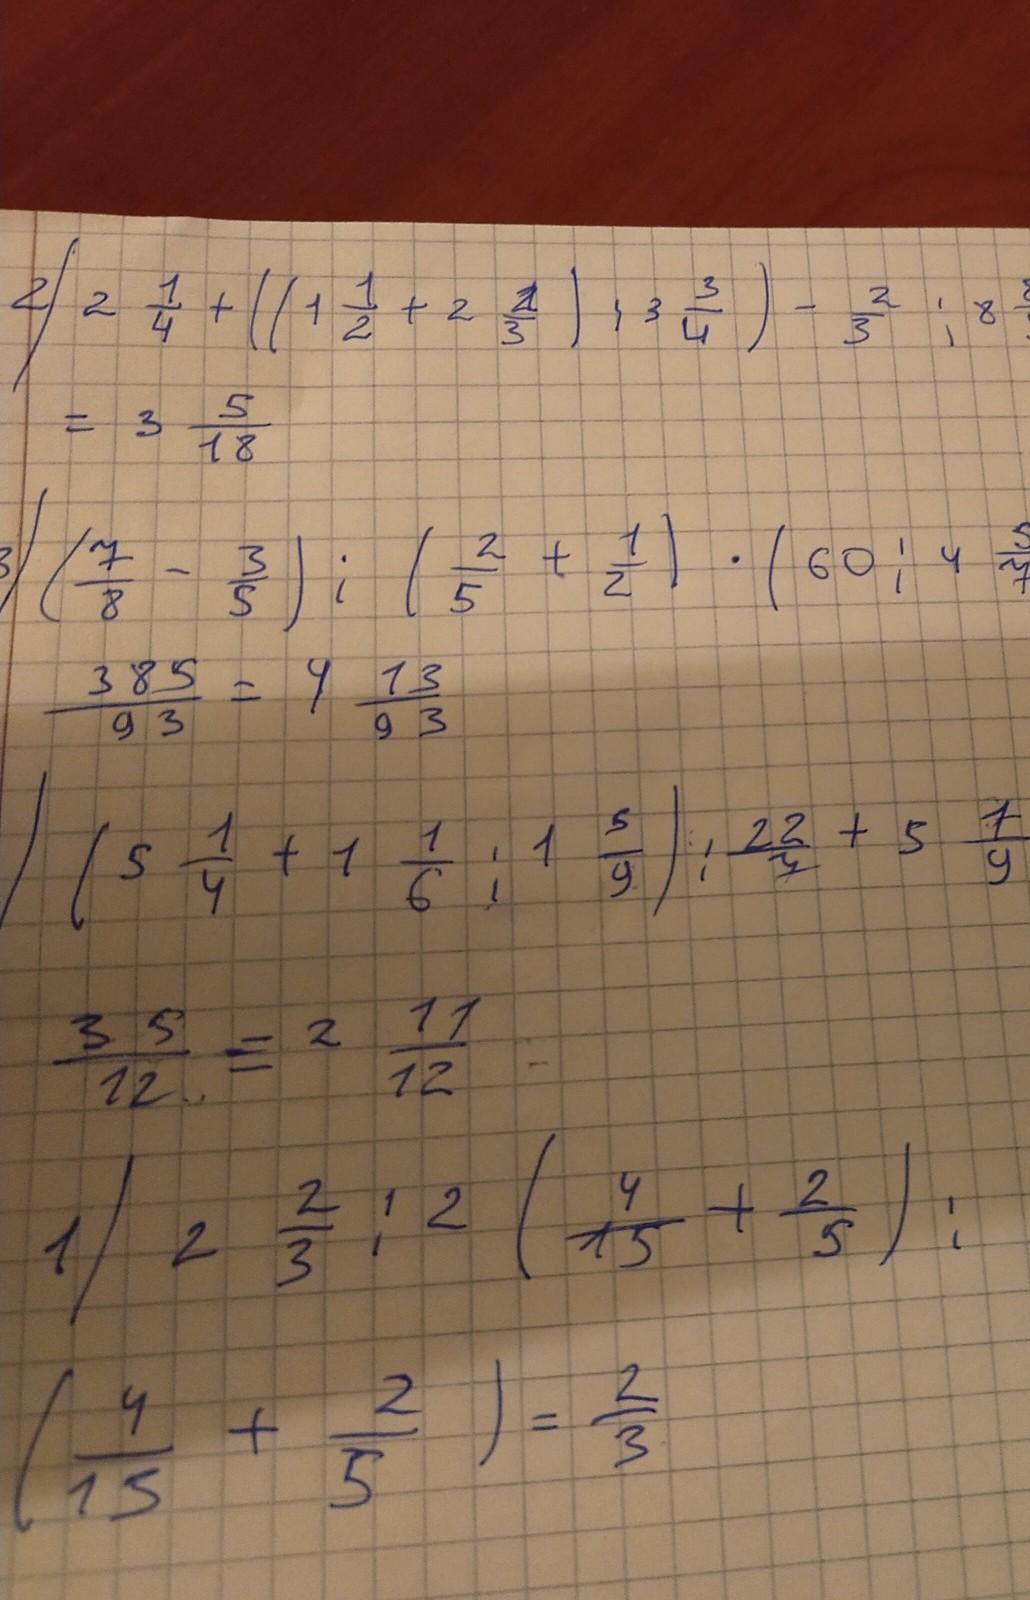 2) 2 1/4 + ((1 1/2 + 2 2/3) : 3 3/4) - 2/3 : 8
= 3 5/18
3) (7/8 - 3/5) : (2/5 + 1/2) · (60 : 4 5/7
385/93 = 4 13/93
) (5 1/4 + 1 1/6 : 1 5/9) : 22/7 + 5 7/9
35/12 = 2 11/12
1) 2 2/3 : 2 (4/15 + 2/5) :
(4/15 + 2/5) = 2/3